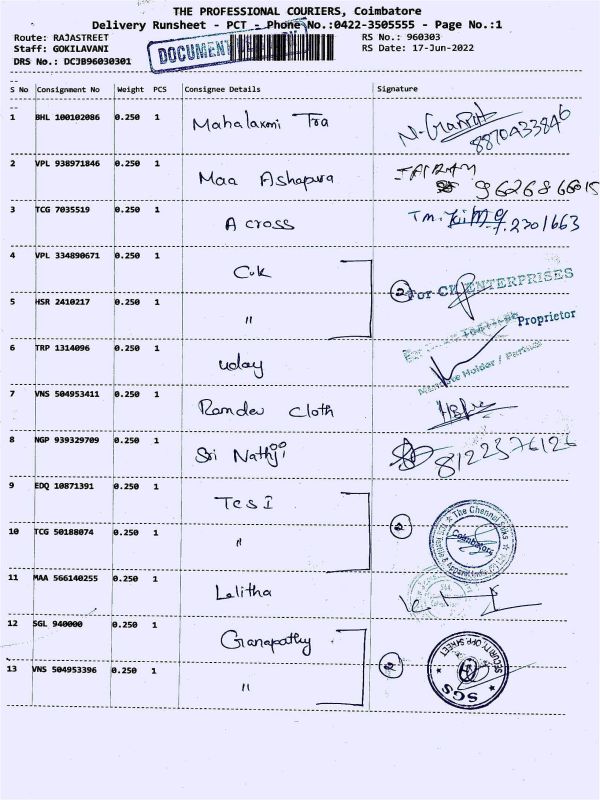 THE PROFESSIONAL COURIERS, Coimbatore
Delivery Runsheet - PCT - Phone No.:0422-3505555 - Page No.:1
Route: RAJASTREET RS No.: 960303
Staff: GOKILAVANI RS Date: 17-Jun-2022
DRS No.: DCJB96030301
DOCUMENT
S No Consignment No Weight PCS Consignee Details Signature
1 BHL 100102086 0.250 1 Mahalaxmi Tra
8870433846
2 VPL 938971846 0.250 1 Maa Ashapura JAIRAM
9626866615
3 TCG 7035519 0.250 1 A cross T.M.
4 VPL 334890671 0.250 1 C.K 2 For CK ENTERPRISES
5 HSR 2410217 0.250 1 " Proprietor
6 TRP 1314096 0.250 1 uday
7 VNS 504953411 0.250 1 Ramdev Cloth
8 NGP 939329709 0.250 1 Sri Nathji
9 EDQ 10871391 0.250 1 TCS I 2 The Channel
10 TCG 50188074 0.250 1 " Coimbatore
11 MAA 566140255 0.250 1 Lalitha
12 SGL 940000 0.250 1 Ganapathy
13 VNS 504953396 0.250 1 " 2 SECURITY OPP STREET SGS